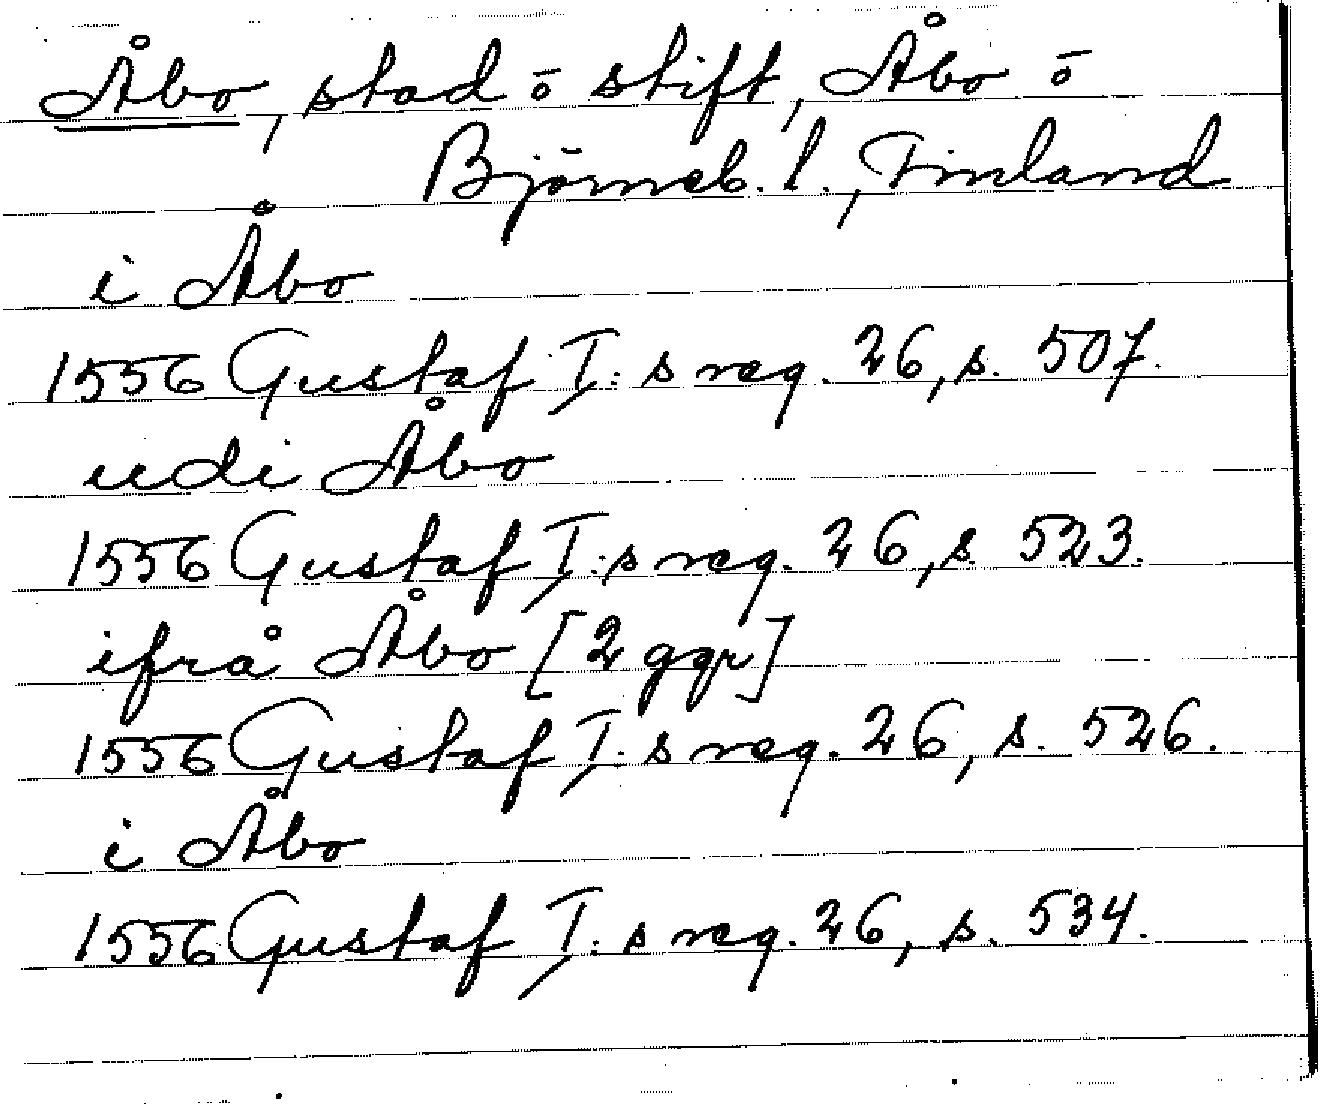 Åbo, stad ō stift, Åbo ō
Björneb. l., Finland
i Åbo
1556 Gustaf I:s reg. 26, s. 507.
udi Åbo
1556 Gustaf I:s reg. 26, s. 523.
ifrå Åbo [2 ggr]
1556 Gustaf I:s reg. 26, s. 526.
i Åbo
1556 Gustaf I:s reg. 26, s. 534.